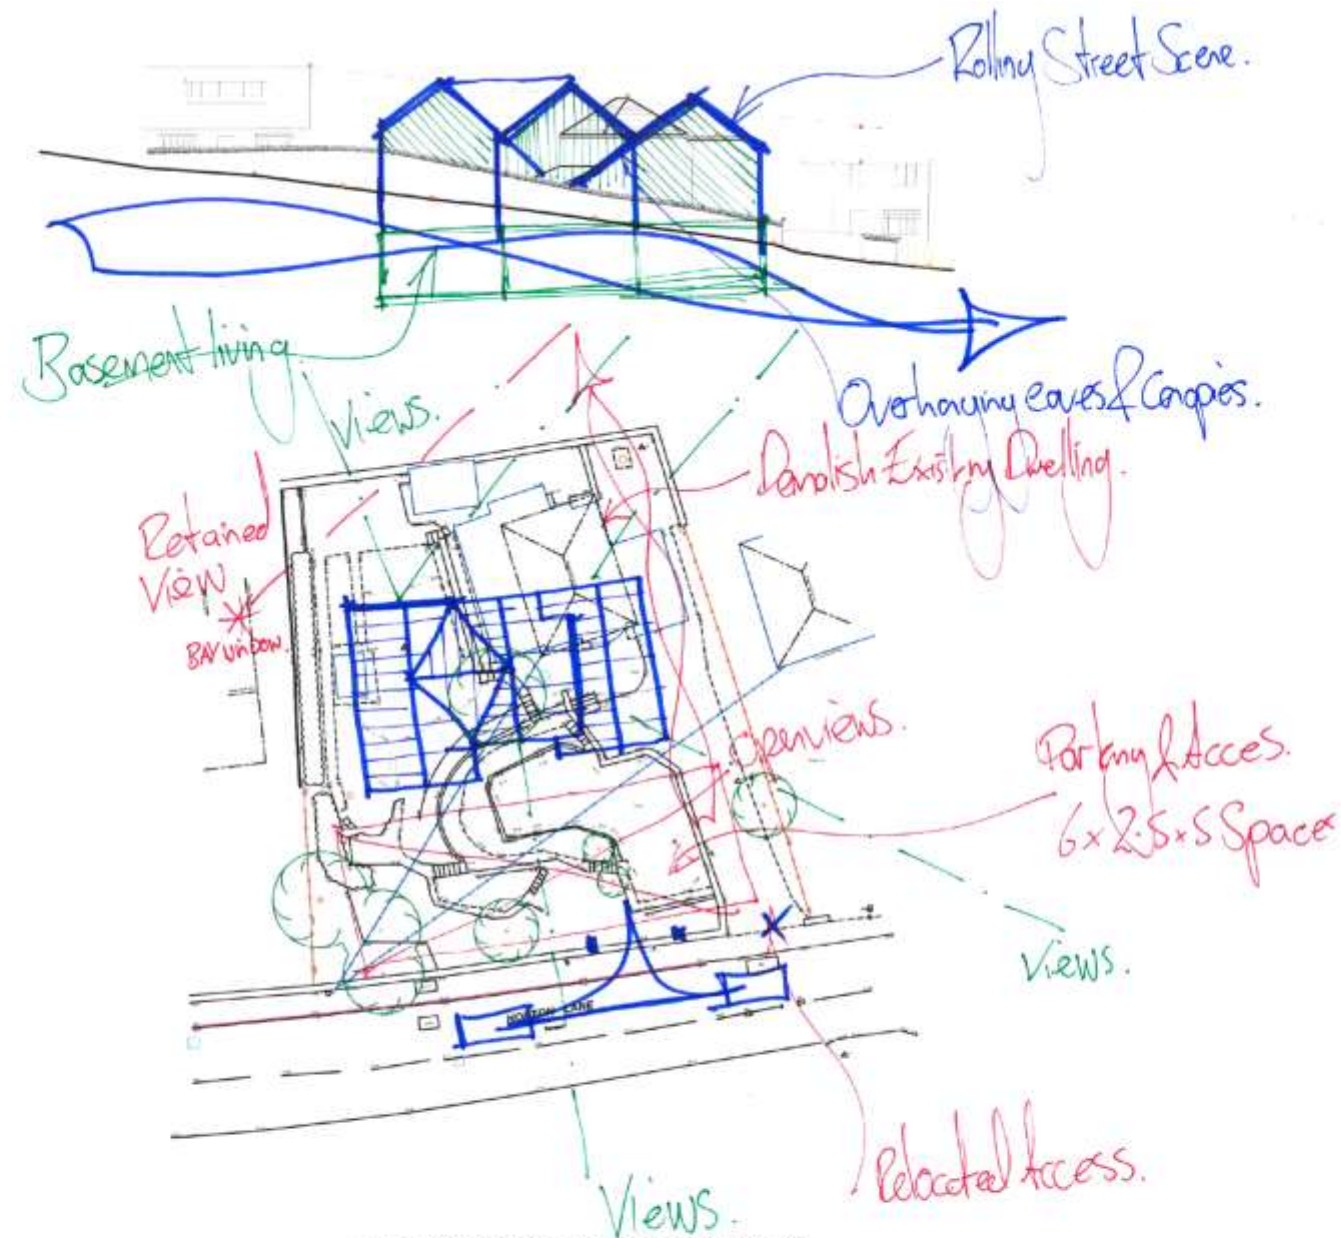 Rolling Street Scene.
Basement living
Views.
Overhanging eaves & Canopies.
Demolish Existing Dwelling.
Retained
View
BAY WINDOW.
Open views.
Parking & Acces.
6 x 2.5 x 5 Space
Views.
LANE
Relocated Access.
Views.